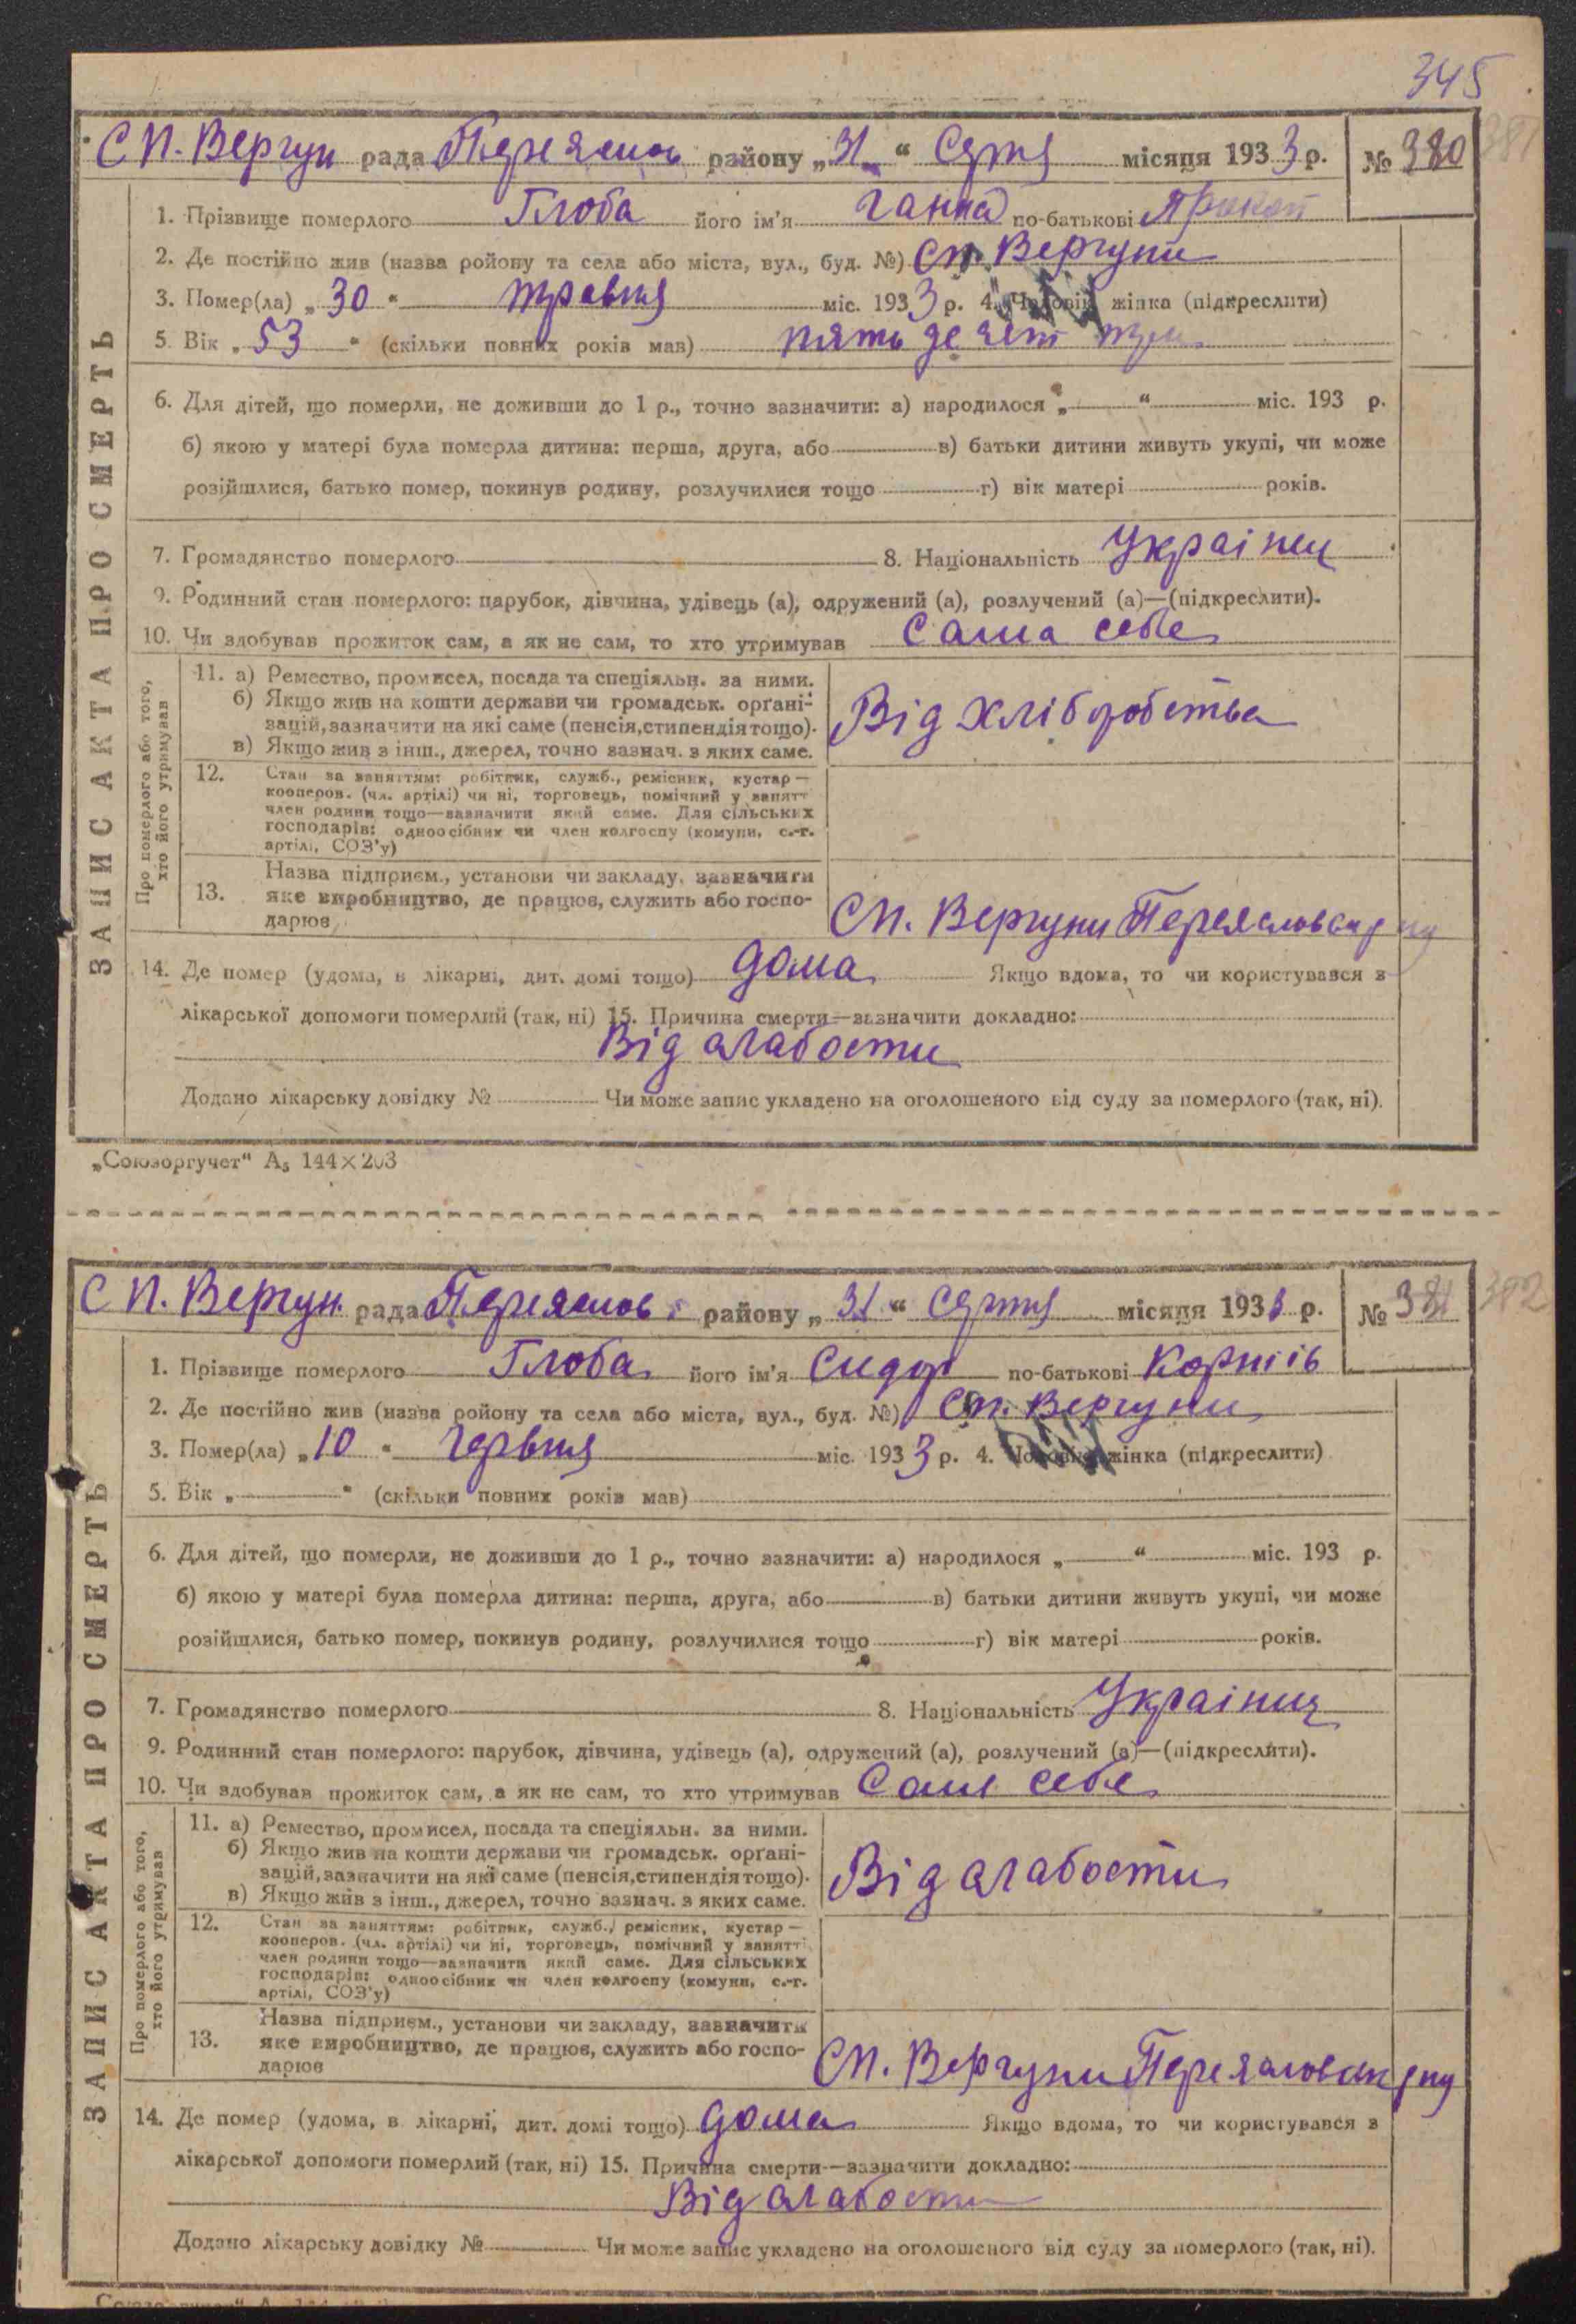 345
С П. Вергун рада Переяслов району „31“ Серпня місяця 1933 р. № 380 381
ЗАПИС АКТА ПРО СМЕРТЬ
1. Прізвище померлого Глоба його ім'я Ганна по-батькові Прокоп
2. Де постійно жив (назва ройону та села або міста, вул., буд. №) Сп. Вергуни
3. Помер(ла) „30“ травня міс. 1933 р. 4. Чоловік, жінка (підкреслити)
5. Вік „53“ (скільки повних років мав) пять десят три
6. Для дітей, що померли, не доживши до 1 р., точно зазначити: а) народилося „ “ міс. 193 р.
б) якою у матері була померла дитина: перша, друга, або в) батьки дитини живуть укупі, чи може
розійшлися, батько помер, покинув родину, розлучилися тощо г) вік матері років.
7. Громадянство померлого 8. Національність Украінец
9. Родинний стан померлого: парубок, дівчина, удівець (а), одружений (а), розлучений (а)—(підкреслити).
10. Чи здобував прожиток сам, а як не сам, то хто утримував Сама себе
Про померлого або того,
хто його утримував
11. а) Ремество, промисел, посада та спеціяльн. за ними.
б) Якщо жив на кошти держави чи громадськ. орґані-
зацій, зазначити на які саме (пенсія, стипендія тощо).
в) Якщо жив з інш., джерел, точно зазнач. з яких саме.
Від хліборобства
12. Стан за заняттям: робітник, служб., ремісник, кустар —
кооперов. (чл. артілі) чи ні, торговець, помічний у занятт
член родини тощо—зазначити який саме. Для сільських
господарів: одноосібник чи член колгоспу (комуни, с.-г.
артілі, СОЗ'у)
13. Назва підприєм., установи чи закладу, зазначити
яке виробництво, де працює, служить або госпо-
дарює
Сп. Вергуни Переяславск рну
14. Де помер (удома, в лікарні, дит. домі тощо) дома Якщо вдома, то чи користувався з
лікарської допомоги померлий (так, ні) 15. Причина смерти—зазначити докладно:
Від слабости
Додано лікарську довідку № Чи може запис укладено на оголошеного від суду за померлого (так, ні).
„Союзоргучет“ А₅ 144×203
С П. Вергун. рада Переяслов. району „31“ Серпня місяця 1933 р. № 381 382
ЗАПИС АКТА ПРО СМЕРТЬ
1. Прізвище померлого Глоба його ім'я Сидор по-батькові Корніів
2. Де постійно жив (назва ройону та села або міста, вул., буд. №) Сп. Вергуни
3. Помер(ла) „10“ Червня міс. 1933 р. 4. Чоловік, жінка (підкреслити)
5. Вік „ “ (скільки повних років мав)
6. Для дітей, що померли, не доживши до 1 р., точно зазначити: а) народилося „ “ міс. 193 р.
б) якою у матері була померла дитина: перша, друга, або в) батьки дитини живуть укупі, чи може
розійшлися, батько помер, покинув родину, розлучилися тощо г) вік матері років.
7. Громадянство померлого 8. Національність Украінец
9. Родинний стан померлого: парубок, дівчина, удівець (а), одружений (а), розлучений (а)—(підкреслити).
10. Чи здобував прожиток сам, а як не сам, то хто утримував Сам себе
Про померлого або того,
хто його утримував
11. а) Ремество, промисел, посада та спеціяльн. за ними.
б) Якщо жив на кошти держави чи громадськ. орґані-
зацій, зазначити на які саме (пенсія, стипендія тощо).
в) Якщо жив з інш., джерел, точно зазнач. з яких саме.
Від слабости
12. Стан за заняттям: робітник, служб., ремісник, кустар —
кооперов. (чл. артілі) чи ні, торговець, помічний у занятті
член родини тощо—зазначити який саме. Для сільських
господарів: одноосібник чи член колгоспу (комуни, с.-г.
артілі, СОЗ'у)
13. Назва підприєм., установи чи закладу, зазначити
яке виробництво, де працює, служить або госпо-
дарює
Сп. Вергуни Переяславск рну
14. Де помер (удома, в лікарні, дит. домі тощо) дома Якщо вдома, то чи користувався з
лікарської допомоги померлий (так, ні) 15. Причина смерти—зазначити докладно:
Від слабости
Додано лікарську довідку № Чи може запис укладено на оголошеного від суду за померлого (так, ні).